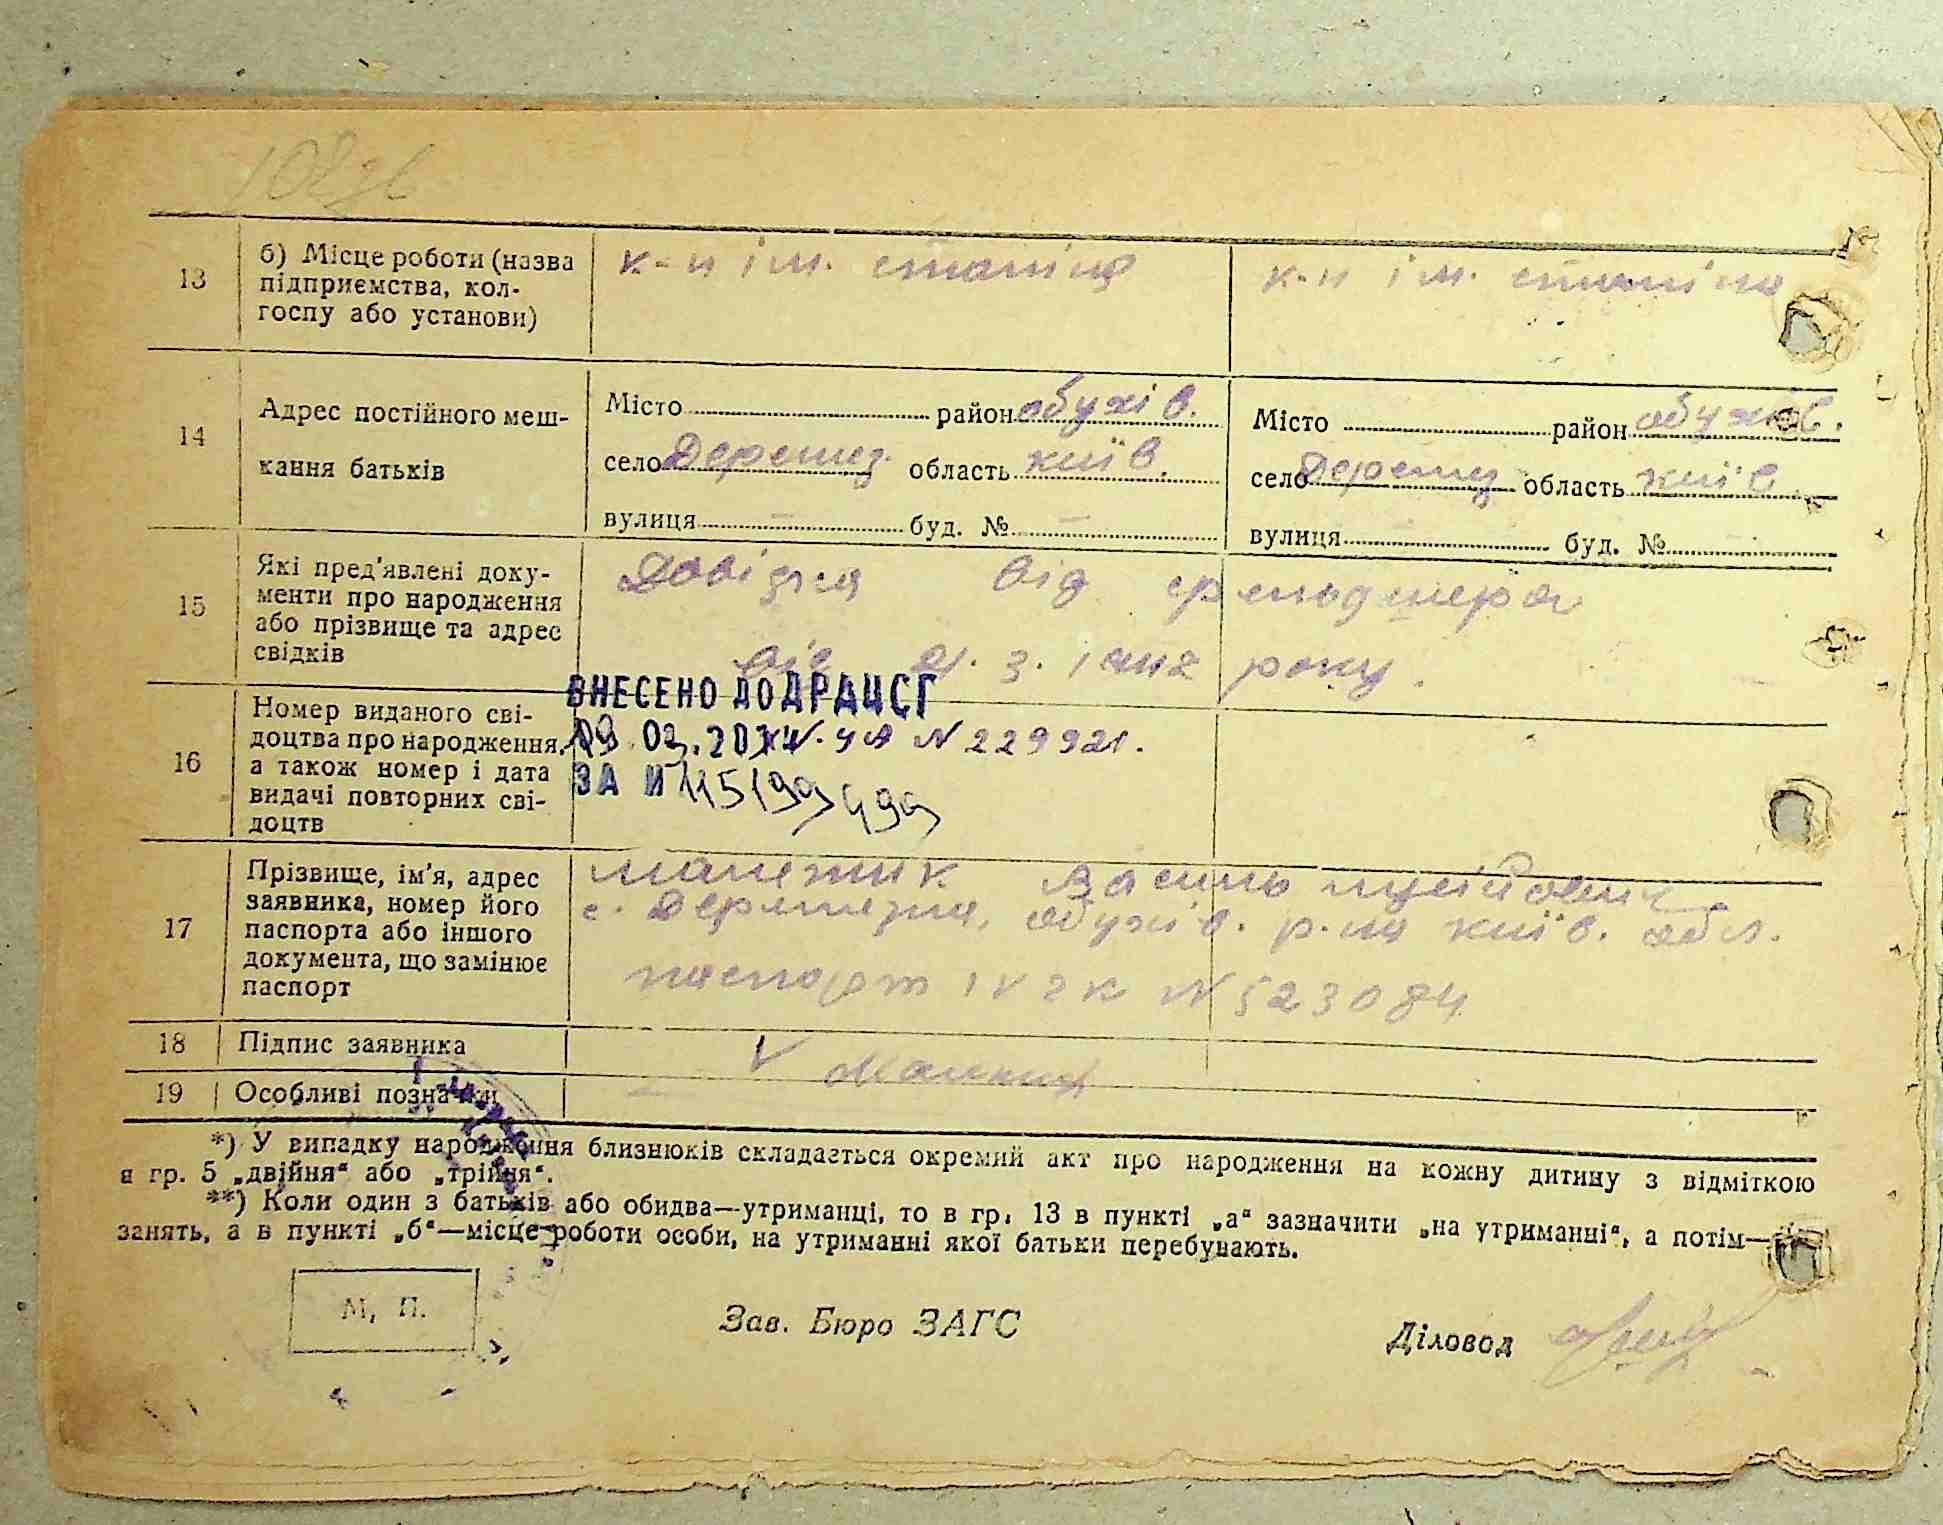 13
б) Місце роботи (назва
підприємства, кол-
госпу або установи)
к-п ім. сталіна
к-п ім. сталіна
14
Адрес постійного меш-
кання батьків
Місто район обухів.
село Деремез. область київ.
вулиця — буд. № —
Місто район обухів.
село Деремез область київ
вулиця буд. №
15
Які пред'явлені доку-
менти про народження
або прізвище та адрес
свідків
Довідка від фельдшера
від 21. 3. року.
16
Номер виданого сві-
доцтва про народження,
а також номер і дата
видачі повторних сві-
доцтв
ВНЕСЕНО ДО ДРАЦСГ
N 229921.
ЗА №
17
Прізвище, ім'я, адрес
заявника, номер його
паспорта або іншого
документа, що замінює
паспорт
Василь
с. Деремезна, обухів. р-на київ. обл.
паспорт N 523084
18 Підпис заявника V
19 Особливі позначки —
*) У випадку народження близнюків складається окремий акт про народження на кожну дитину з відміткою
в гр. 5 „двійня“ або „трійня“.
**) Коли один з батьків або обидва—утриманці, то в гр. 13 в пункті „а“ зазначити „на утриманні“, а потім—
занять, а в пункті „б“—місце роботи особи, на утриманні якої батьки перебувають.
М. П.
Зав. Бюро ЗАГС
Діловод